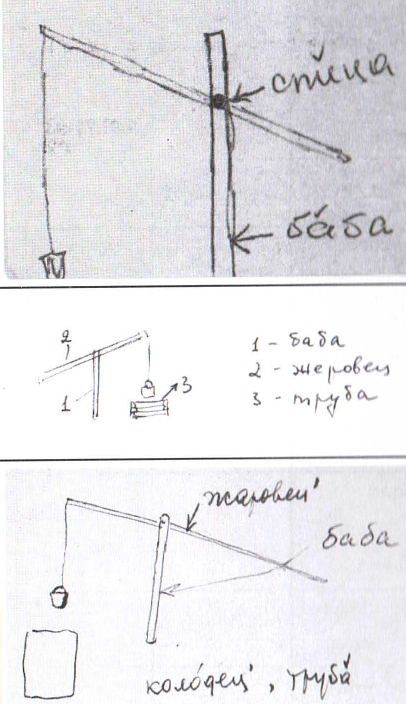 спи́ца
ба́ба
2
1
3
1 - баба
2 - жеровец
3 - труба
жаровец'
баба
коло́дец', труба́